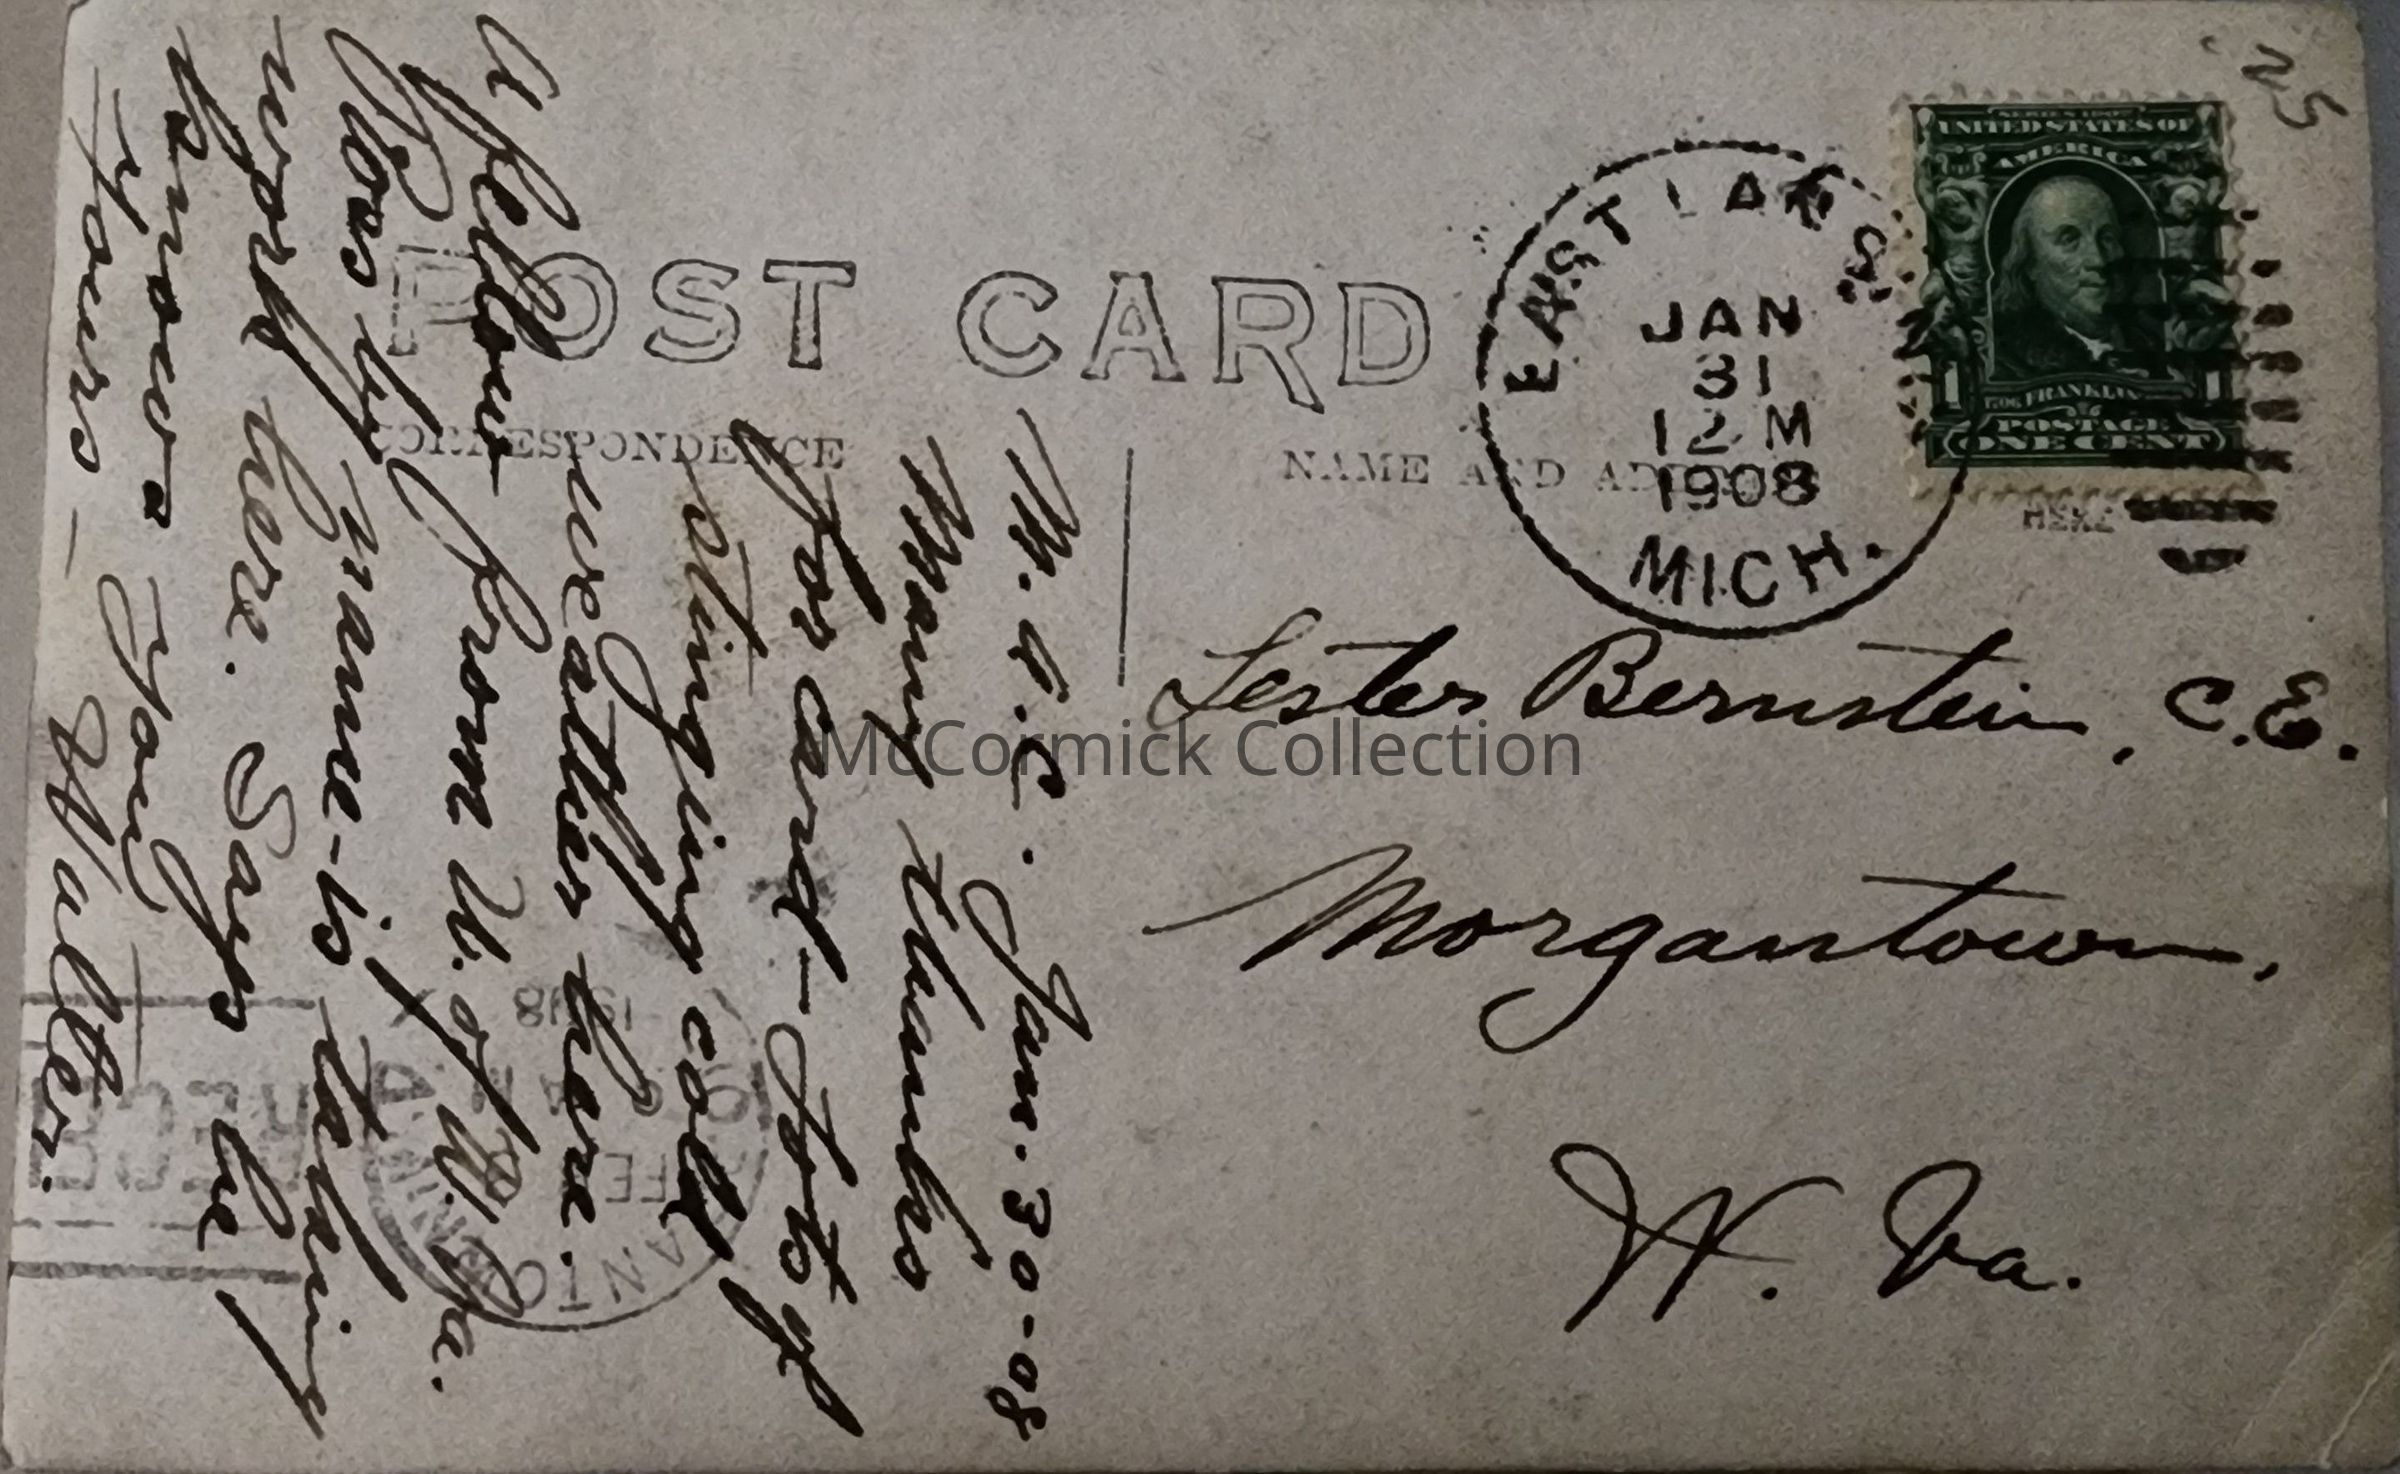 POST CARD
CORRESPONDENCE
NAME AND ADDRESS
HERE
EAST LANSING
JAN
31
12 M
1908
MICH.
SERIES 1902
UNITED STATES OF
AMERICA
1706 FRANKLIN
POSTAGE
1 ONE CENT 1
M.A.C. Jan. 30-08
Many thanks
for card - Lots of
stinging cold
weather here.
A fellow from W. of W. Va.
Ross by name - is taking
work here. Says he
knows you
Yours - Walter.
Lester Bernstein, C.E.
Morgantown,
W. Va.
1908
FEB
McCormick Collection